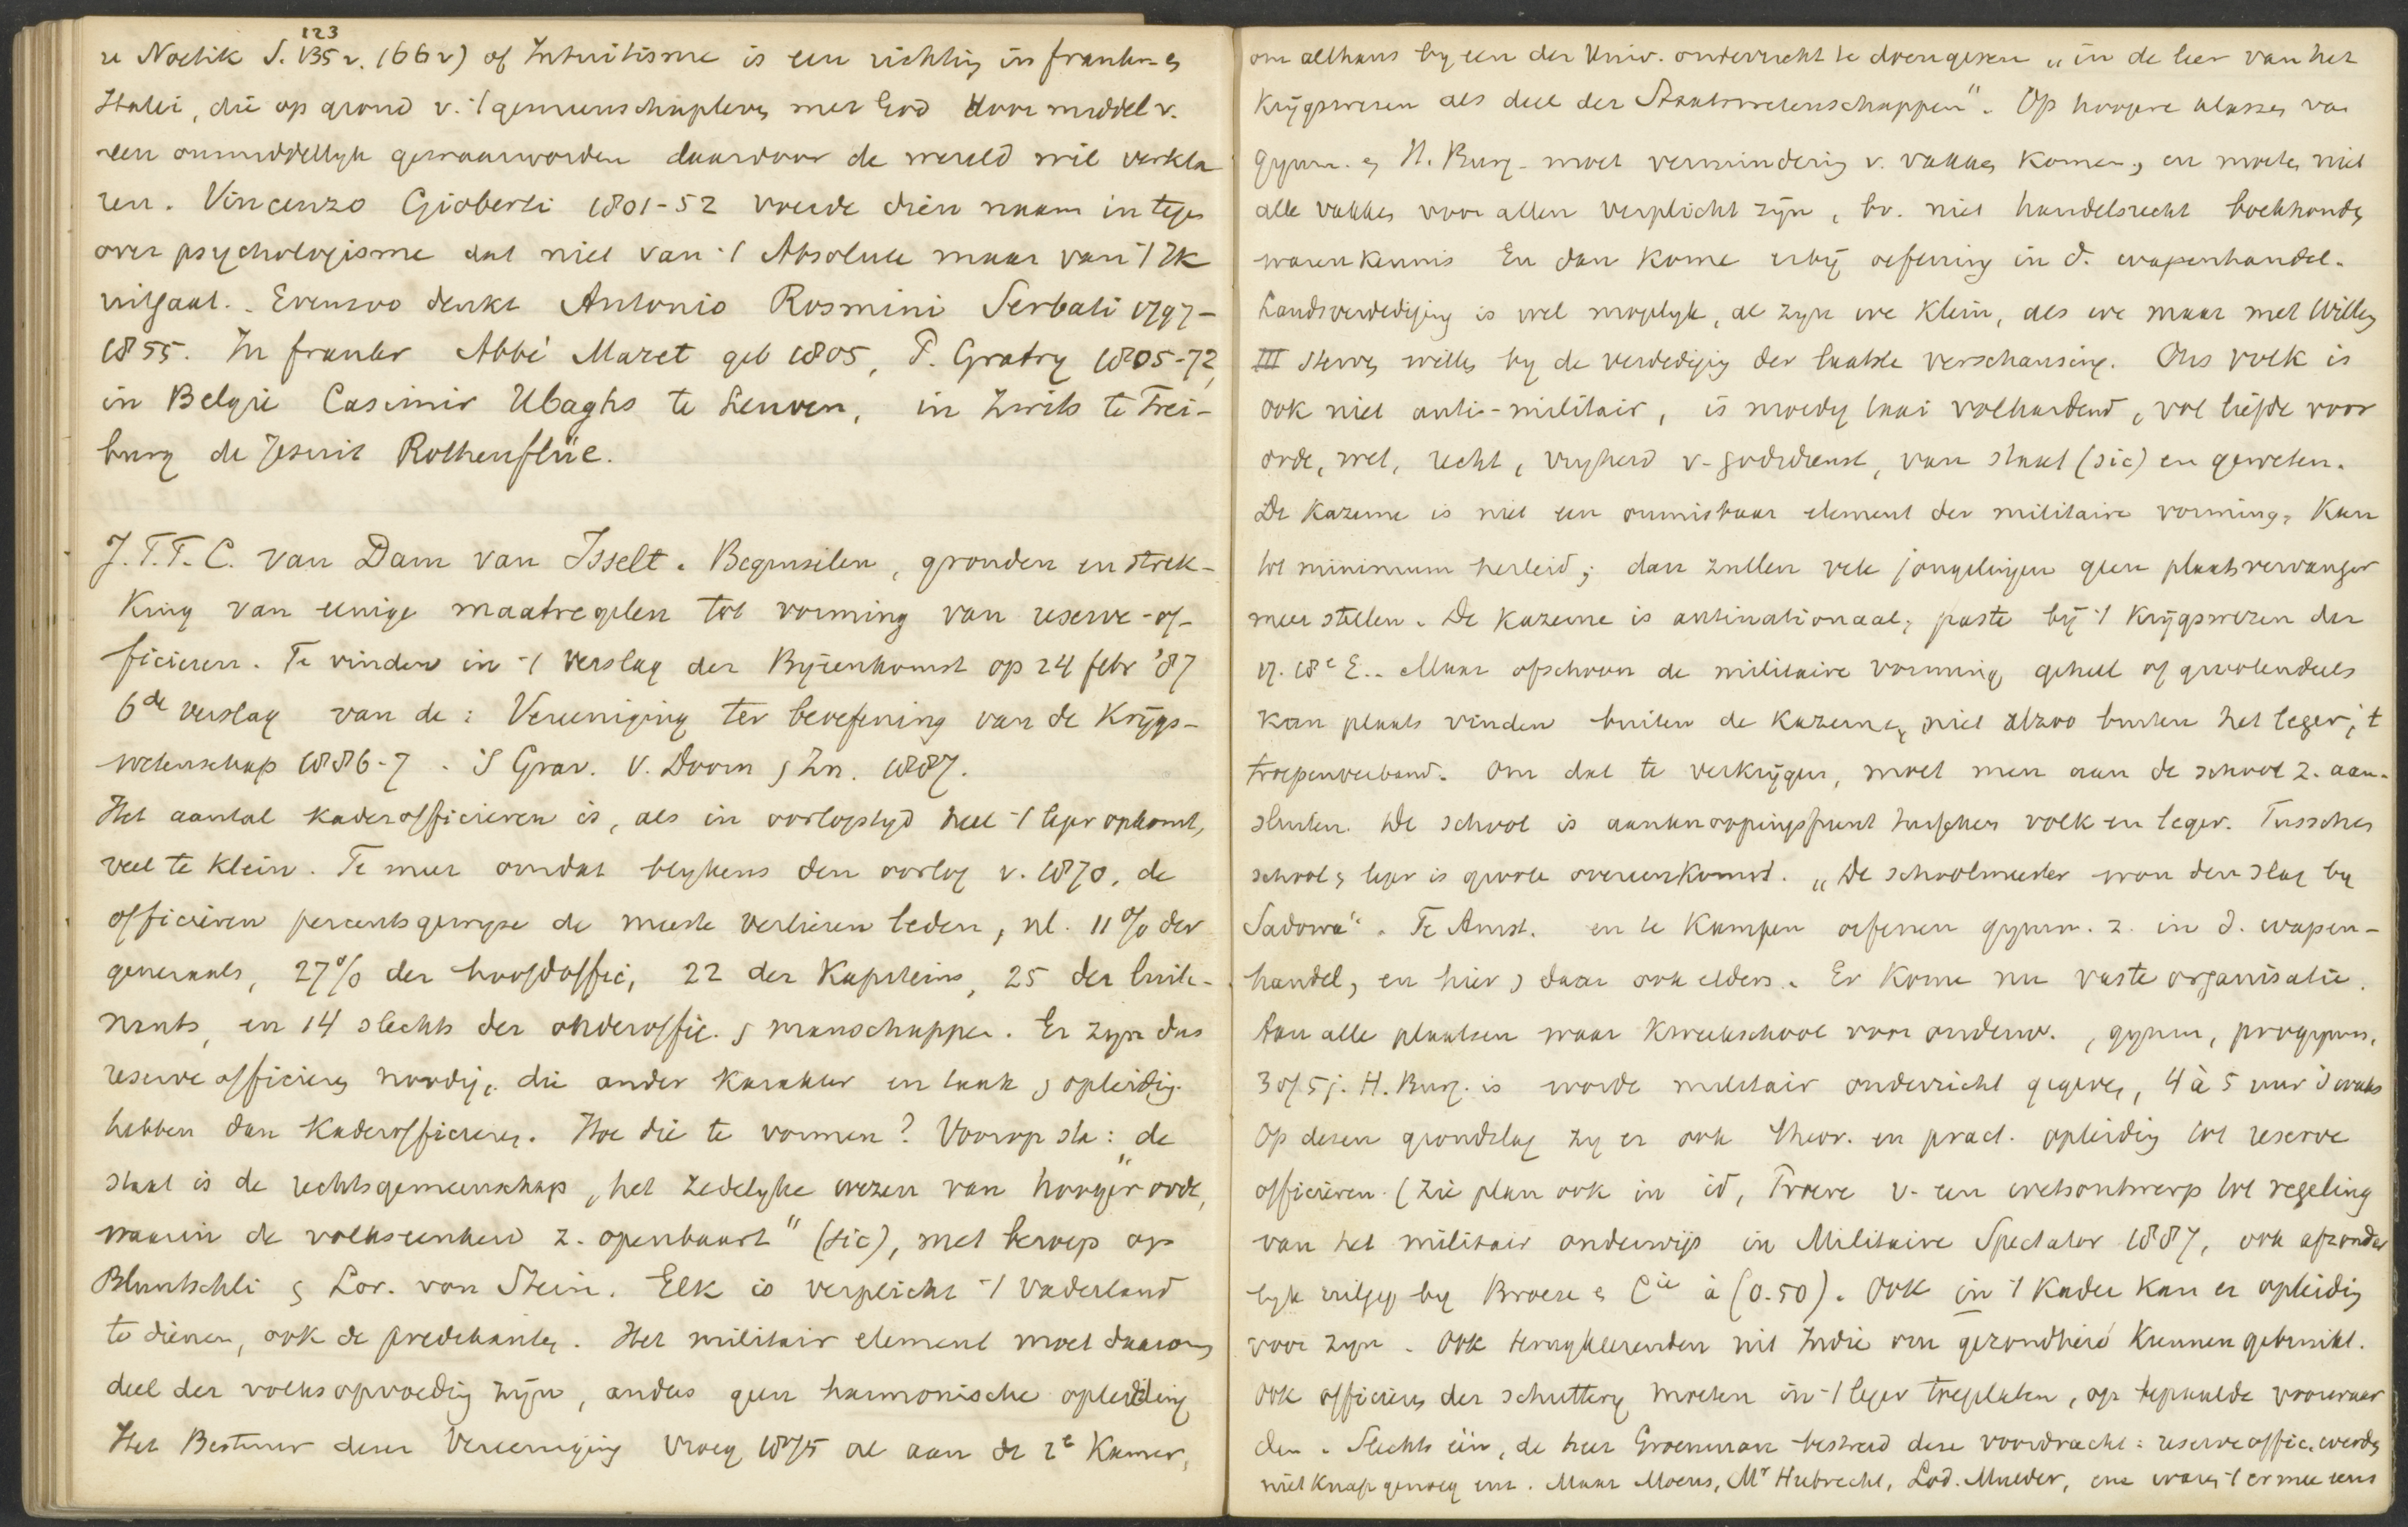 u Noetik S. 135 v. 123 (66 v) of Intuitisme is een richting in frankr. en
Italië, die op grond v. 't gemeenschapleven met God door middel v.
een onmiddellyk gewaarworden daardoor de wereld wil verkla
ren. Vincenzo Gioberti 1801-52 voerde dien naam in tegen
over psychologisme dat niet van 't Absolute maar van 't Ik
uitgaat. Evenzoo denkt Antonio Rosmini Serbati 1797-
1855. In frankr Abbé Maret geb 1805, P. Gratry 1805-72,
in België Casimir Ubaghs te Leuven, in Zwits te Frei-
burg de Jesuit Rothenflüe.
J.T.T.C. van Dam van Isselt. Beginselen, gronden en strek-
king van eenige maatregelen tot vorming van reserve-of-
ficieren. Te vinden in 't verslag der Byeenkomst op 24 febr '87
6de verslag van de: Vereeniging ter beoefening van de Krygs-
wetenschap 1886-7. 'S Grav. V. Doorn & Zn. 1887.
Het aantal kaderofficieren is, als in oorlogstyd heel 't leger opkomt,
veel te klein. Te meer omdat blykens den oorlog v. 1870, de
officieren percentsgewyze de meeste verliezen leden, nl. 11% der
generaals, 27% der hoofdoffic, 22 der Kapiteins, 25 der luite-
nants, en 14 slechts der onderoffic. & manschappen. Er zyn dus
reserve officieren noodig, die ander karakter en taak & opleiding
hebben dan Kaderofficieren. Hoe die te vormen? Voorop sta: de
staat is de rechtsgemeenschap, „het zedelyke wezen van hooger orde,
waarin de volkseenheid z. openbaart" (sic), met beroep op
Bluntschli & Lor. von Stein. Elk is verplicht 't Vaderland
te dienen, ook de predikanten. Het militair element moet daarom
deel der volksopvoeding zyn, anders geen harmonische opleiding
Het Bestuur dezer Vereeniging vroeg 1875 al aan de 2e Kamer,
om althans by een der Univ. onderricht te doen geven „in de leer van het
Krygswezen als deel der Staatswetenschappen". Op hoogere klassen van
gymn. en H. Burg. moet vermindering v. vakken komen, en moeten niet
alle vakken voor allen verplicht zyn, bv. niet handelsrecht boekhouden
warenkennis En dan kome erby oefening in d. wapenhandel.
Landsverdediging is wel mogelyk, al zyn we klein, als we maar met Willem
III sterven willen by de verdediging der laatste verschansing. Ons volk is
ook niet anti-militair, is moedig taai volhardend, vol liefde voor
orde, wet, recht, vryheid v. godsdienst, van staat (sic) en geweten.
De Kazerne is niet een onmisbaar element der militaire vorming, Kan
tot minimum herleid; dan zullen vele jongelingen geen plaatsvervanger
meer stellen. De Kazerne is antinationaal, paste by 't Krygswezen der
17. 18e E.. Maar ofschoon de militaire vorming geheel of grootendeels
kan plaats vinden buiten de Kazerne, niet alzoo buiten het leger, 't
troepenverband. Om dat te verkrygen, moet men aan de school z. aan-
sluiten. De school is aanknoopingspunt tusschen volk en leger. Tusschen
school & leger is groote overeenkomst. „De schoolmeester won den slag by
Sadowa". Te Amst. en te Kampen oefenen gymn. z. in d. wapen-
handel, en hier & daar ook elders. Er kome nu vaste organisatie.
Aan alle plaatsen waar Kweekschool voor onderw., gymn, progymn,
3 of 5 j. H. Burg. is worde militair onderricht gegeven, 4 à 5 uur 's weeks
Op dezen grondslag zy er ook theor. en pract. opleiding tot reserve
officieren. (zie plan ook in id, Proeve v. een wetsontwerp tot regeling
van het militair onderwijs in Militaire Spectator 1887, ook afzonder
lyk uitgeg by Broese & Cie à (0.50). Ook in 't Kader kan er opleiding
voor zyn. Ook terugkeerenden uit Indië om gezondheid kunnen gebruikt.
Ook officieren der schuttery moeten in 't leger toegelaten, op bepaalde voorwaar
den. Slechts één, de heer Groenman bestreed deze voordracht: reserveoffic. werden
niet knap genoeg enz. Maar Moens, Mr Hubrecht, Lod. Mulder, enz waren 't ermee eens